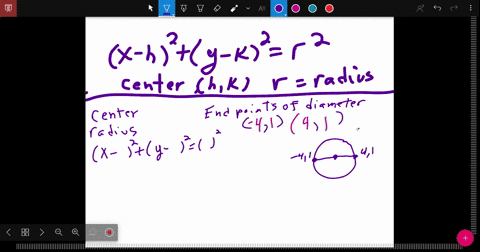 (x-h)²+(y-k)²=r²
center (h,k) r = radius
center
radius
(x- )²+(y- )²=( )²
End points of diameter
(-4,1) (4,1)
-4,1 4,1